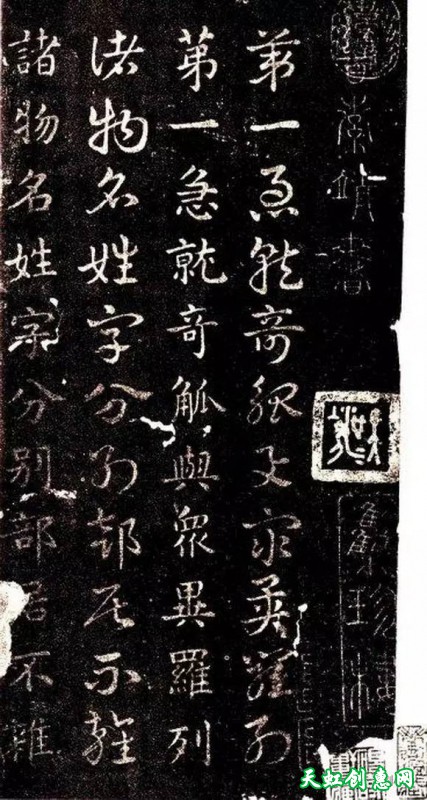 索靖書
第一急就奇觚與衆異羅列
第一急就奇觚與衆異羅列
諸物名姓字分別部居不雜
諸物名姓字分別部居不雜
天虹创意网